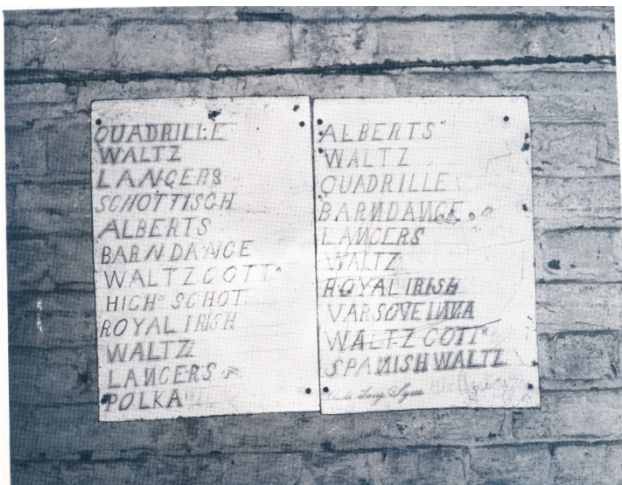 QUADRILLE
WALTZ
LANCERS
SCHOTTISCH
ALBERTS
BARNDANCE
WALTZ COTT"
HIGH" SCHOT
ROYAL IRISH
WALTZ
LANCERS
POLKA
ALBERTS"
WALTZ
QUADRILLE
BARNDANCE
LANCERS
WALTZ
ROYAL IRISH
VARSOVEINNA
WALTZ COTT"
SPANISH WALTZ
Lang Syne